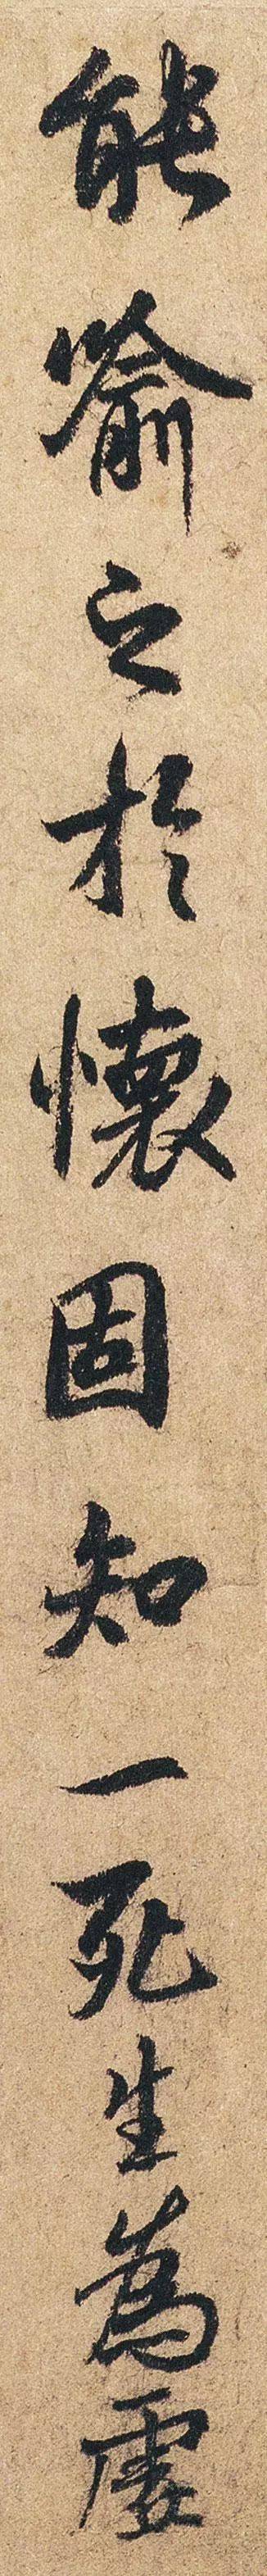 能喻之於懷固知一死生為虛